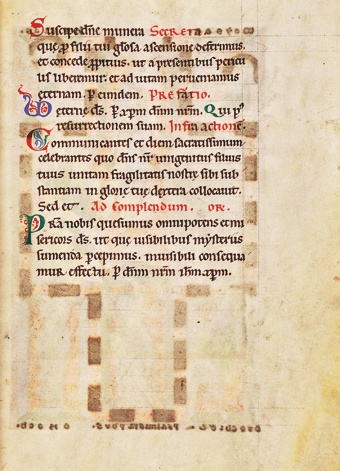 Suscipe dne munera Secreta
que p filii tui gl'osa ascensione deferimus.
et concede ppitius. ut a presentibus pericu
lis liberemur. et ad uitam perueniamus
eternam. P eundem. Prefatio.
eterne ds. P xpm dnm nrm. Qui p'
resurrectionem suam. Infra actione.
Communicantes et diem sacratissimum
celebrantes quo dns nr unigenitus filius
tuus unitam fragilitatis nostre sibi sub
stantiam in glorie tue dextera collocauit.
Sed et. Ad Complendum. or.
Pra nobis quesumus omnipotens et mi
sericors ds. ut que uisibilibus mysteriis
sumenda pcepimus. inuisibili consequa
mur effectu. P dnm nrm ihm xpm.